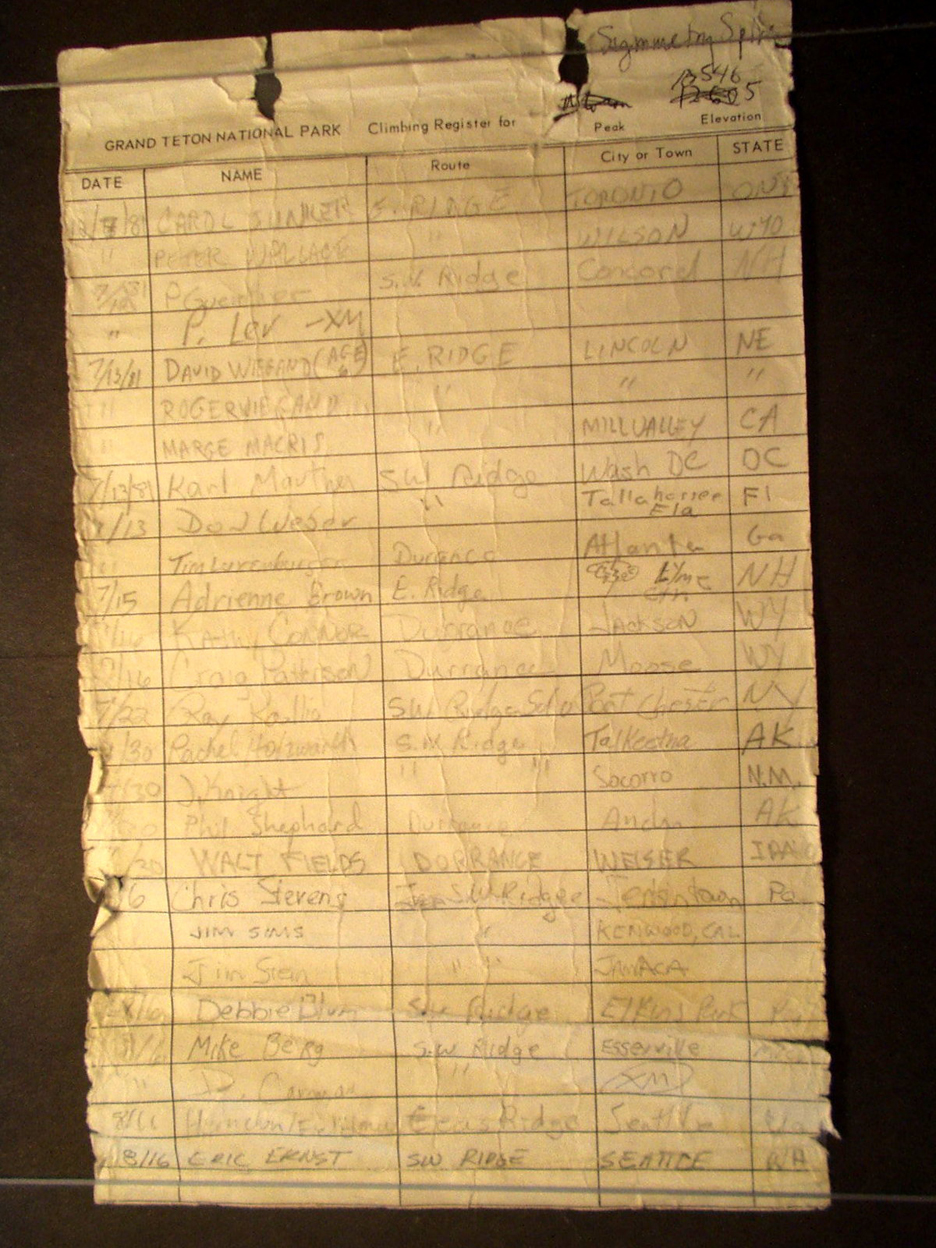 Symmetry Spire
10546
5
GRAND TETON NATIONAL PARK Climbing Register for Peak Elevation
DATE NAME Route City or Town STATE
CAROL E. RIDGE TORONTO ONT
" PETER WALLACE " WILSON WYO
P Guenther S.W. Ridge Concord NH
" P. Lev -XM
7/13/81 DAVID WIEGAND (AGE E. RIDGE LINCOLN NE
" ROGER WIEGAND " " "
" MARGE MACRIS " MILL VALLEY CA
7/13/81 Karl SW Ridge Wash DC DC
7/13 Don Weser " Tallahassee Fla Fl
" Tim Durance Atlanta Ga
7/15 Adrienne Brown E. Ridge Lyme NH
7/16 Kathy Connor Durrance Jackson WY
7/16 Craig Patterson Durrance Moose WY
7/22 Ray SW Ridge Solo Port Chester NY
7/30 Rachel Holzwarth S.W. Ridge Talkeetna AK
7/30 J. Knight " " Socorro N.M.
Phil Shephard Durrance AK
WALT FIELDS DORRANCE WEISER IDA
Chris Stevens SW Ridge Pa
JIM SIMS " KENWOOD, CAL
Jim Stein " " JAMACA
Debbie Blum S.W. Ridge Elkins Park Pa
Mike Berg S.W. Ridge Esserville
" D. " (XM)
8/11 Ridge Seattle
8/16 ERIC ERNST SW RIDGE SEATTLE WA